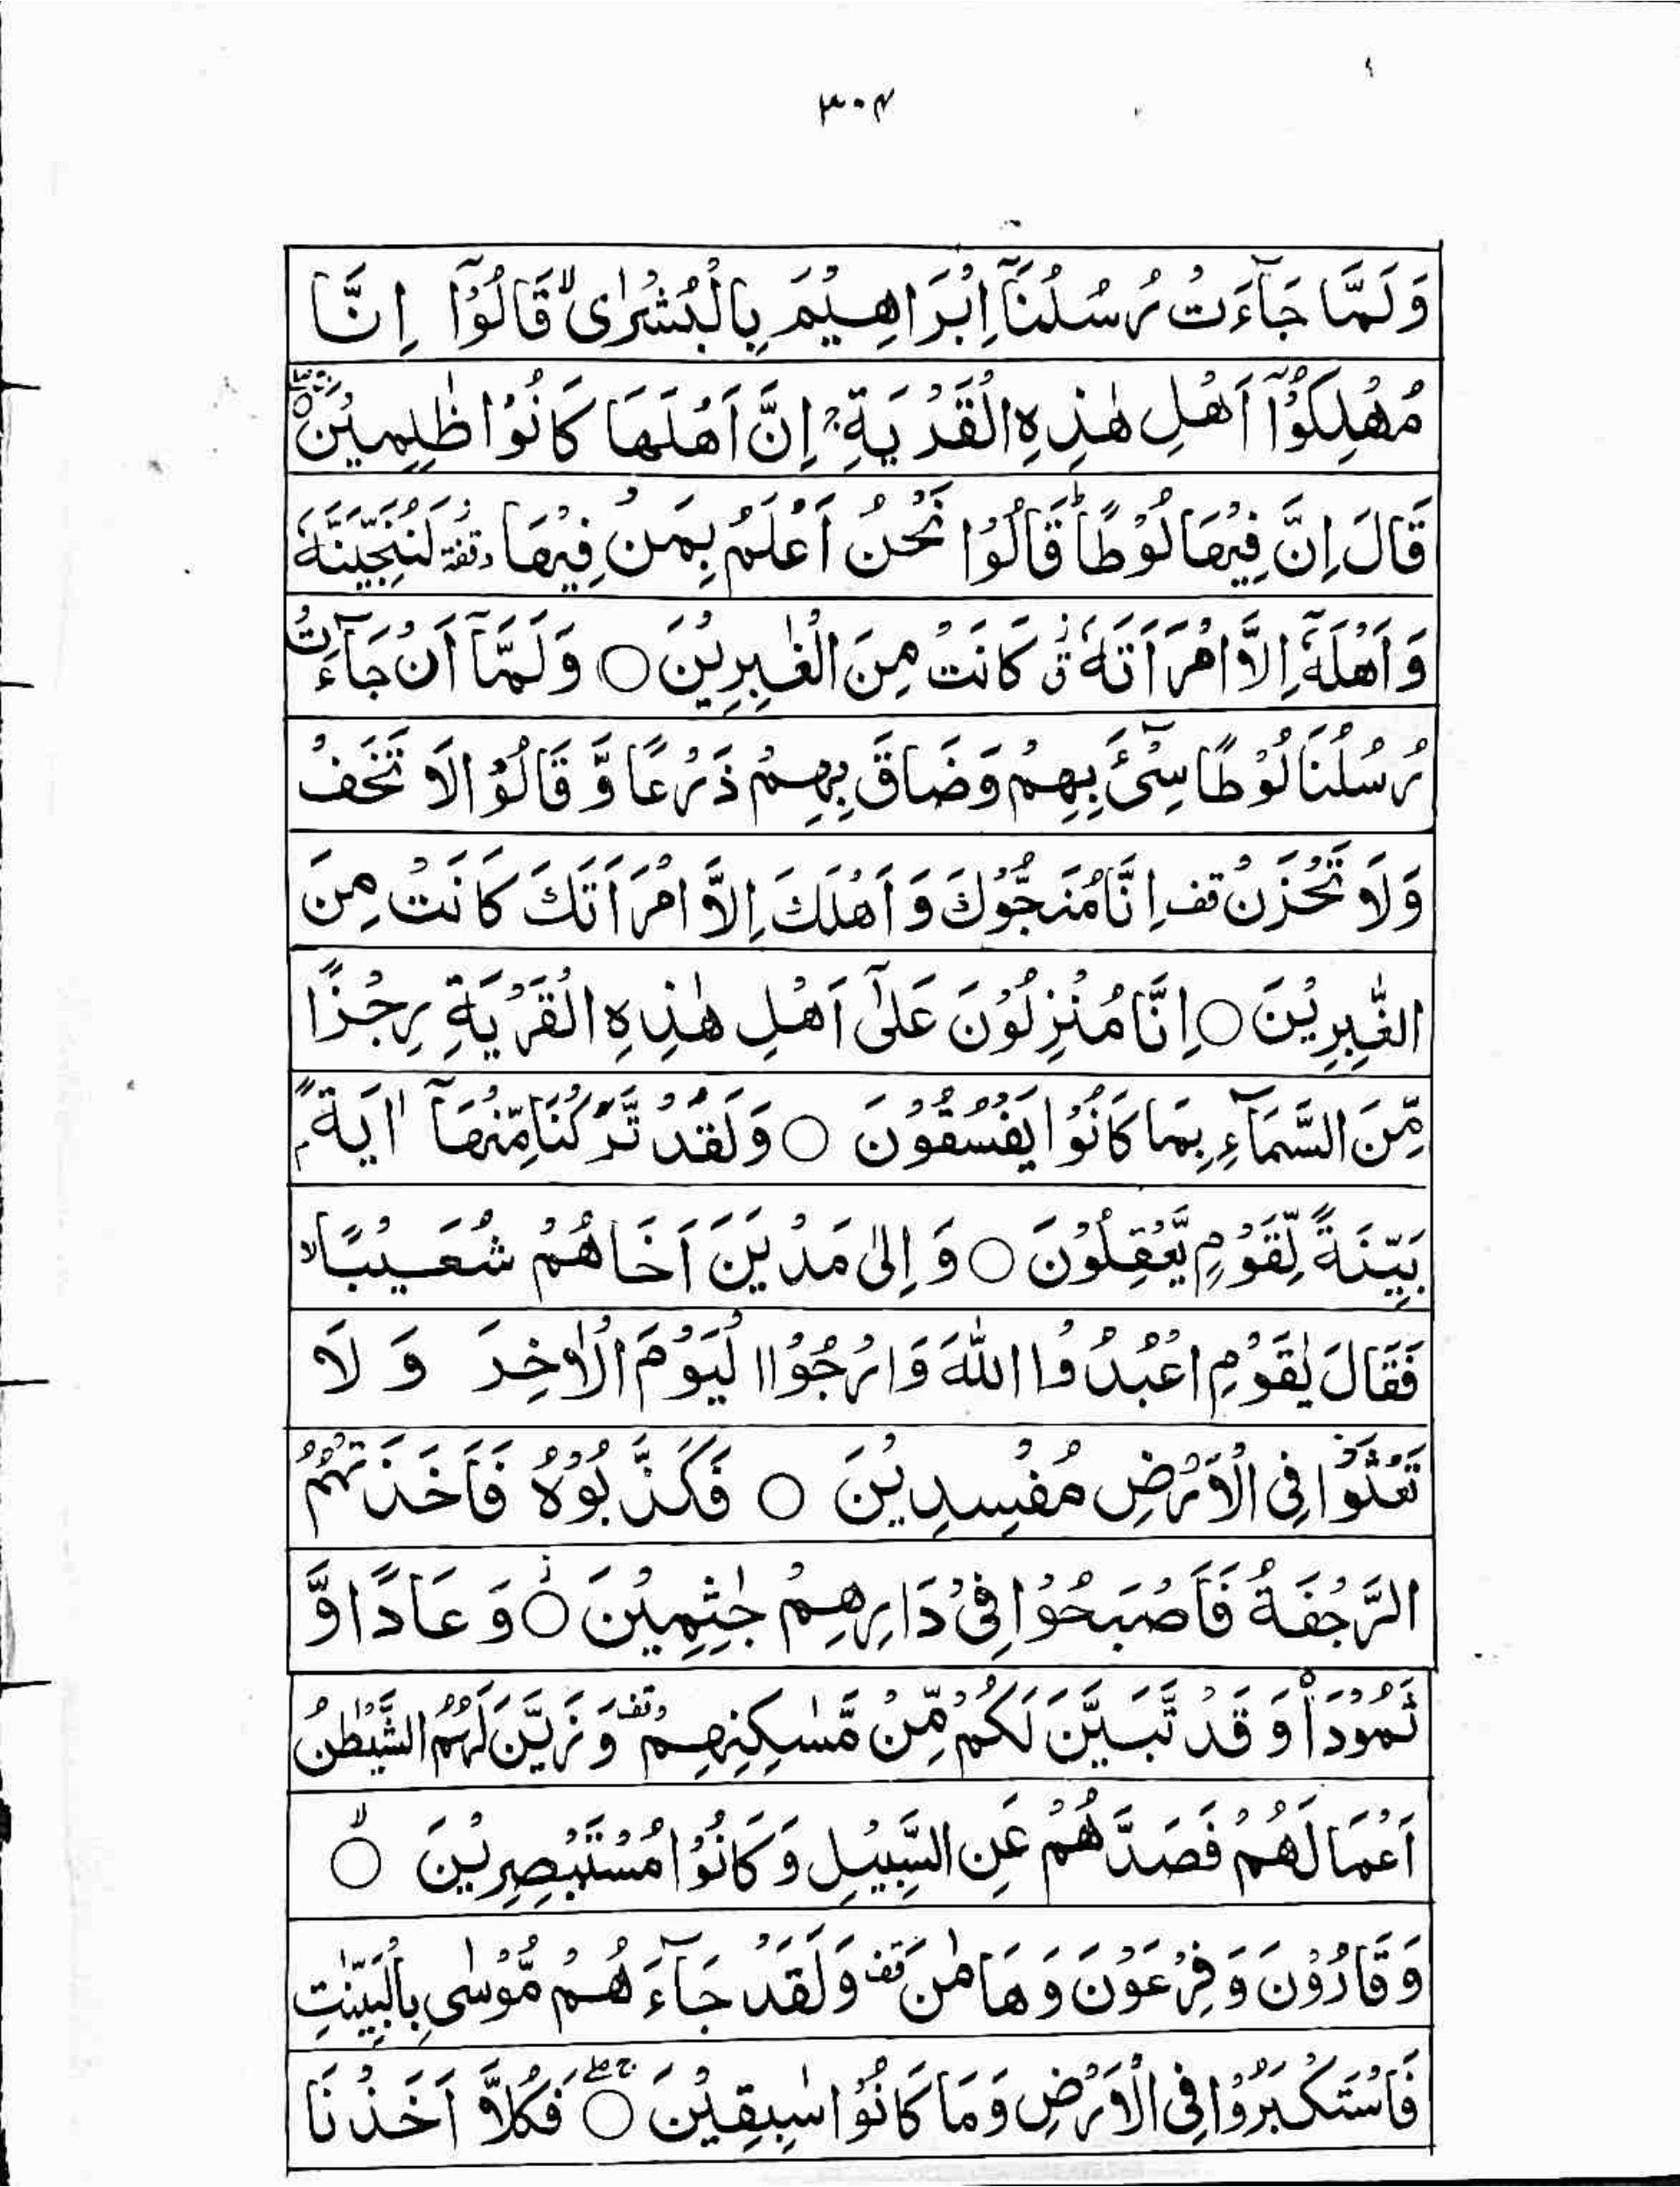 ۳۰۴
وَلَمَّا جَآءَتْ رُسُلُنَآ اِبْرَاهِيْمَ بِالْبُشْرٰى ۙ قَالُوْٓا اِنَّا
مُهْلِكُوْٓا اَهْلِ هٰذِهِ الْقَرْيَةِ ۚ اِنَّ اَهْلَهَا كَانُوْا ظٰلِمِيْنَ ○
قَالَ اِنَّ فِيْهَا لُوْطًا ؕ قَالُوْا نَحْنُ اَعْلَمُ بِمَنْ فِيْهَا وقفة لَنُنَجِّيَنَّهٗ
وَاَهْلَهٗٓ اِلَّا امْرَاَتَهٗ ق كَانَتْ مِنَ الْغٰبِرِيْنَ ○ وَلَمَّآ اَنْ جَآءَتْ
رُسُلُنَا لُوْطًا سِیْٓئَ بِهِمْ وَضَاقَ بِهِمْ ذَرْعًا وَّ قَالُوْا لَا تَخَفْ
وَلَا تَحْزَنْ قف اِنَّا مُنَجُّوْكَ وَ اَهْلَكَ اِلَّا امْرَاَتَكَ كَانَتْ مِنَ
الْغٰبِرِيْنَ ○ اِنَّا مُنْزِلُوْنَ عَلٰٓى اَهْلِ هٰذِهِ الْقَرْيَةِ رِجْزًا
مِّنَ السَّمَآءِ بِمَا كَانُوْا يَفْسُقُوْنَ ○ وَلَقَدْ تَّرَكْنَا مِنْهَآ اٰيَةًۢ
بَيِّنَةً لِّقَوْمٍ يَّعْقِلُوْنَ ○ وَ اِلٰى مَدْيَنَ اَخَاهُمْ شُعَيْبًا ۙ
فَقَالَ يٰقَوْمِ اعْبُدُوا اللّٰهَ وَارْجُوْا الْيَوْمَ الْاٰخِرَ وَ لَا
تَعْثَوْا فِى الْاَرْضِ مُفْسِدِيْنَ ○ فَكَذَّبُوْهُ فَاَخَذَتْهُمُ
الرَّجْفَةُ فَاَصْبَحُوْا فِىْ دَارِهِمْ جٰثِمِيْنَ ○ وَ عَادًا وَّ
ثَمُوْدَا۠ وَ قَدْ تَّبَيَّنَ لَكُمْ مِّنْ مَّسٰكِنِهِمْ وقف وَ زَيَّنَ لَهُمُ الشَّيْطٰنُ
اَعْمَالَهُمْ فَصَدَّهُمْ عَنِ السَّبِيْلِ وَ كَانُوْا مُسْتَبْصِرِيْنَ ○ ۙ
وَ قَارُوْنَ وَ فِرْعَوْنَ وَ هَامٰنَ قف وَلَقَدْ جَآءَهُمْ مُّوْسٰى بِالْبَيِّنٰتِ
فَاسْتَكْبَرُوْا فِى الْاَرْضِ وَمَا كَانُوْا سٰبِقِيْنَ ○ فَكُلًّا اَخَذْنَا